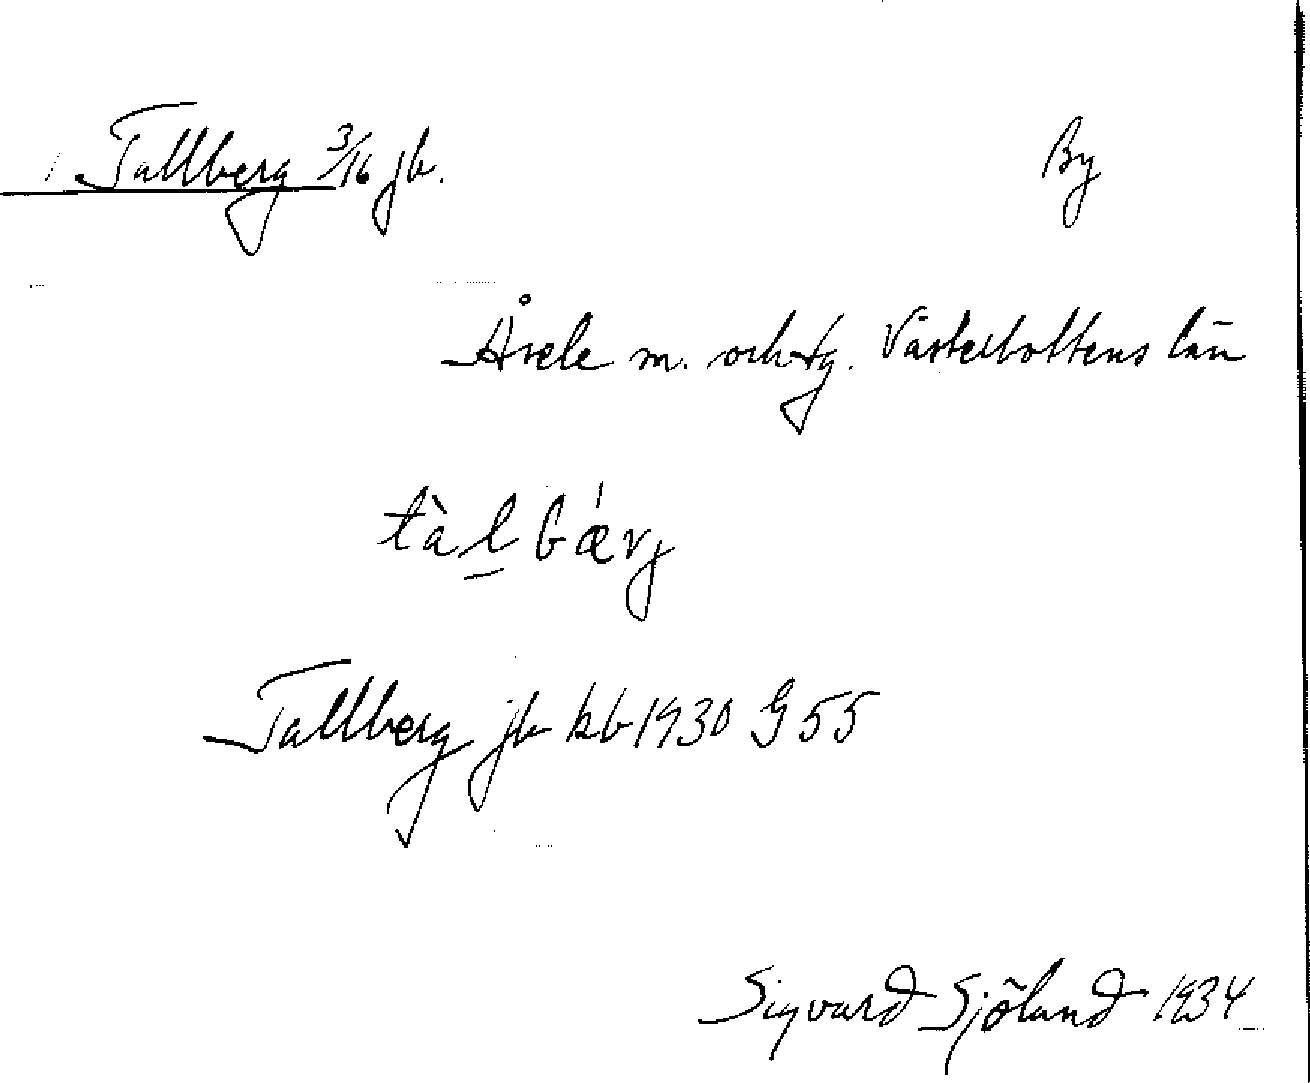 Tallberg 3/16 jb. By
Åsele m. och tg. Västerbottens län
tàlbærj
Tallberg jb kb 1930 G 55
Sigvard Sjöland 1934